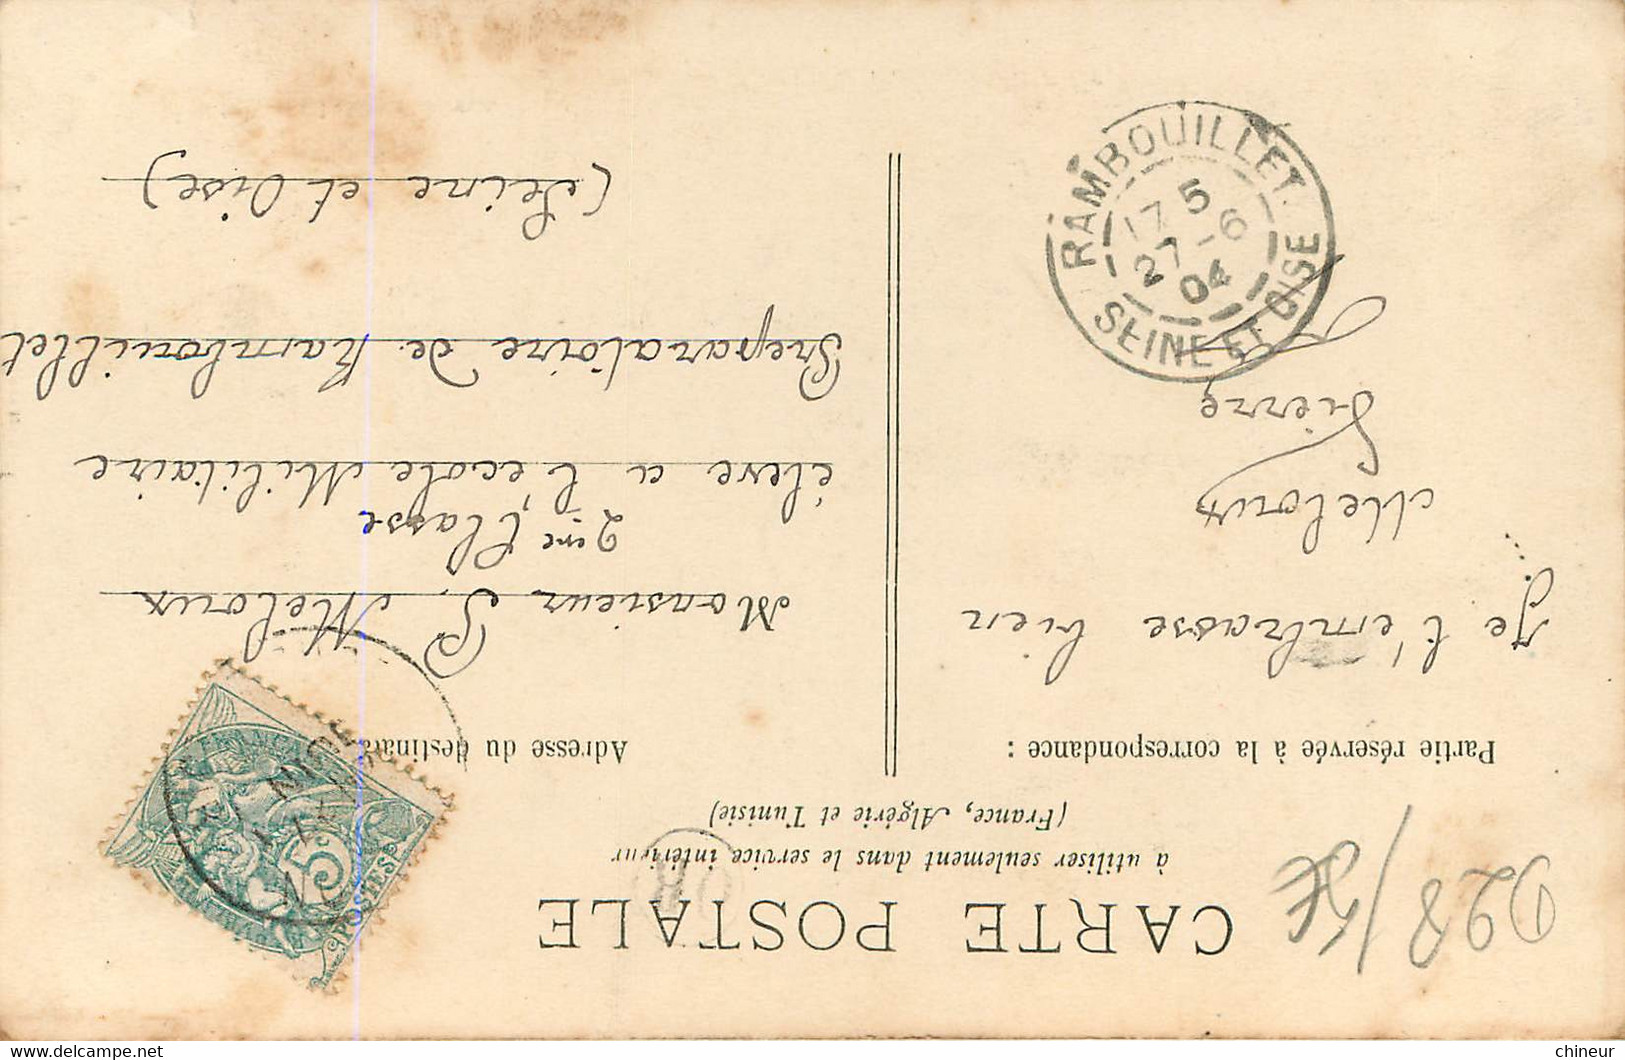 CARTE POSTALE
à utiliser seulement dans le service intérieur
(France, Algérie et Tunisie)
Partie réservée à la correspondance :
Adresse du destinata
Je t'embrasse bien
Meloux
Pierre
Monsieur P. Meloux
2ème Classe
élève a l'école Militaire
Preparatoire de Rambouillet
(Seine et Oise)
RAMBOUILLET
5
17
27 -6
04
SEINE ET OISE
5c
POSTES
D28/
delcampe.net
chineur